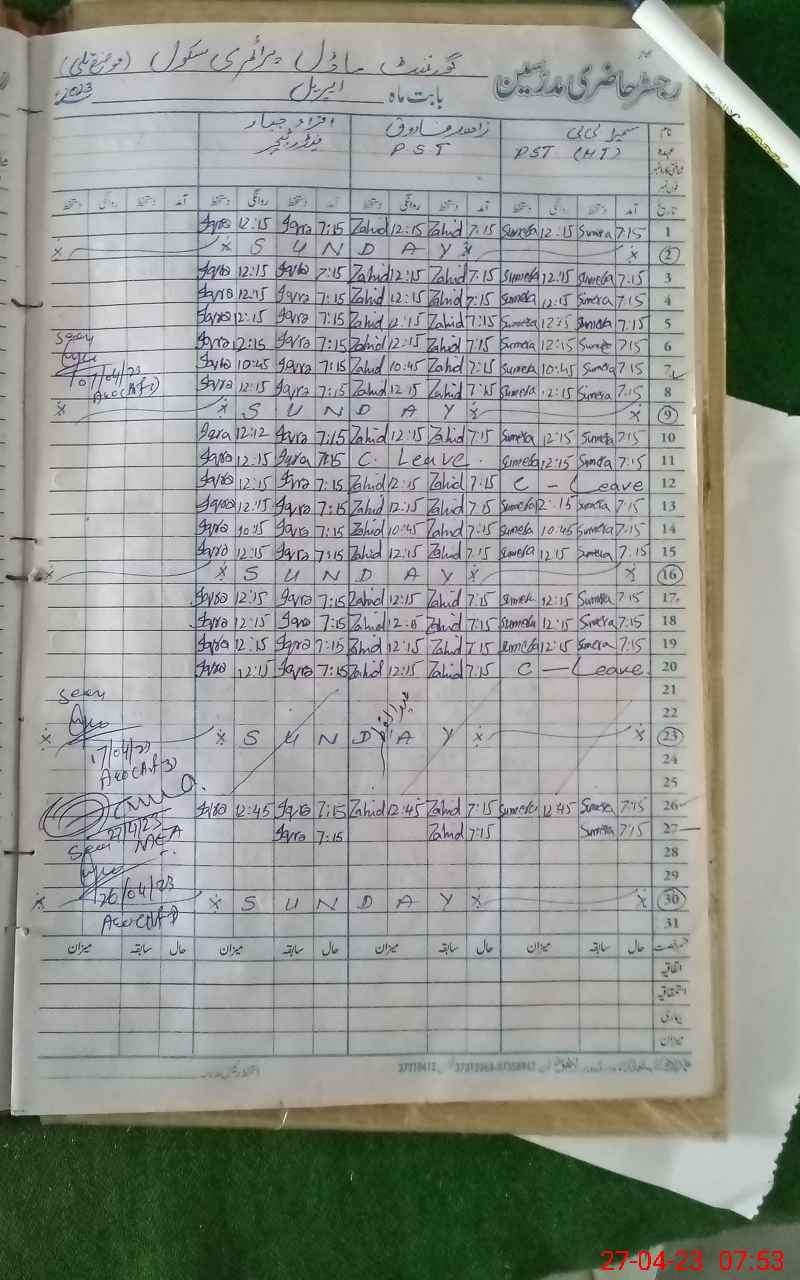 رجسٹر حاضری مدرسین گورنمنٹ ماڈل پرائمری سکول
بابت ماہ اپریل 2023ء
نام سمیرا بی بی زاہد فاروق
عہدہ PST (HT) PST
تاریخ آمد دستخط روانگی دستخط آمد دستخط روانگی دستخط آمد دستخط روانگی دستخط آمد دستخط روانگی دستخط
Iqra 12:15 Iqra 7:15 Zahid 12:15 Zahid 7:15 Sumera 12:15 Sumera 7:15 1
x x S U N D A Y x x 2
Iqra 12:15 Iqra 7:15 Zahid 12:15 Zahid 7:15 Sumera 12:15 Sumera 7:15 3
Iqra 12:15 Iqra 7:15 Zahid 12:15 Zahid 7:15 Sumera 12:15 Sumera 7:15 4
Iqra 12:15 Iqra 7:15 Zahid 12:15 Zahid 7:15 Sumera 12:15 Sumera 7:15 5
Seen Iqra 12:15 Iqra 7:15 Zahid 12:15 Zahid 7:15 Sumera 12:15 Sumera 7:15 6
07/04/23 Iqra 10:45 Iqra 7:15 Zahid 10:45 Zahid 7:15 Sumera 10:45 Sumera 7:15 7
Iqra 12:15 Iqra 7:15 Zahid 12:15 Zahid 7:15 Sumera 12:15 Sumera 7:15 8
x x S U N D A Y x x 9
Iqra 12:12 Iqra 7:15 Zahid 12:15 Zahid 7:15 Sumera 12:15 Sumera 7:15 10
Iqra 12:15 Iqra 7:15 C. Leave. Sumera 12:15 Sumera 7:15 11
Iqra 12:15 Iqra 7:15 Zahid 12:15 Zahid 7:15 C - Leave 12
Iqra 12:15 Iqra 7:15 Zahid 12:15 Zahid 7:15 Sumera 12:15 Sumera 7:15 13
Iqra 10:15 Iqra 7:15 Zahid 10:45 Zahid 7:15 Sumera 10:45 Sumera 7:15 14
Iqra 12:15 Iqra 7:15 Zahid 12:15 Zahid 7:15 Sumera 12:15 Sumera 7:15 15
x x S U N D A Y x x 16
Iqra 12:15 Iqra 7:15 Zahid 12:15 Zahid 7:15 Sumera 12:15 Sumera 7:15 17
Iqra 12:15 Iqra 7:15 Zahid 12:15 Zahid 7:15 Sumera 12:15 Sumera 7:15 18
Iqra 12:15 Iqra 7:15 Zahid 12:15 Zahid 7:15 Sumera 12:15 Sumera 7:15 19
Iqra 12:15 Iqra 7:15 Zahid 12:15 Zahid 7:15 C - Leave 20
Seen 21
عید الفطر 22
x x S U N D A Y x x 23
17/04/23 24
25
Iqra 12:45 Iqra 7:15 Zahid 12:45 Zahid 7:15 Sumera 12:45 Sumera 7:15 26
27/4/23 Iqra 7:15 Zahid 7:15 Sumera 7:15 27
Seen MEA 28
26/04/23 29
x x S U N D A Y x x 30
31
حال سابقہ میزان حال سابقہ میزان حال سابقہ میزان حال سابقہ میزان
اتفاقیہ
استحقاقیہ
بیماری
میزان
27-04-23 07:53